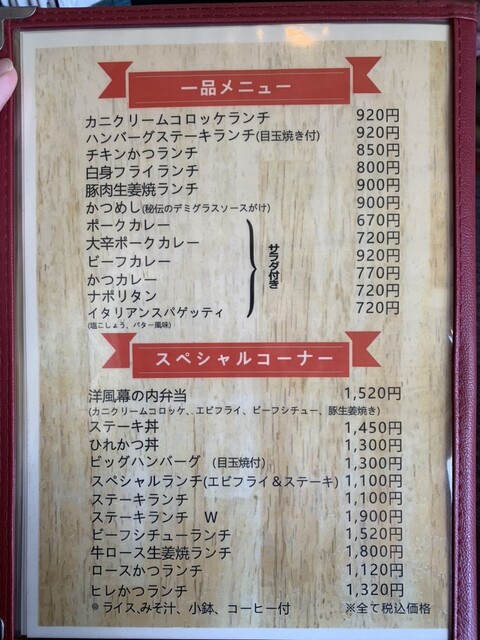 一品メニュー
カニクリームコロッケランチ 920円
ハンバーグステーキランチ(目玉焼き付) 920円
チキンかつランチ 850円
白身フライランチ 800円
豚肉生姜焼ランチ 900円
かつめし(秘伝のデミグラスソースがけ) 900円
ポークカレー 670円
大辛ポークカレー 720円
ビーフカレー 920円
かつカレー 770円
ナポリタン 720円
イタリアンスパゲッティ 720円
(塩こしょう、バター風味)
サラダ付き
スペシャルコーナー
洋風幕の内弁当 1,520円
(カニクリームコロッケ、エビフライ、ビーフシチュー、豚生姜焼き)
ステーキ丼 1,450円
ひれかつ丼 1,300円
ビッグハンバーグ (目玉焼付) 1,300円
スペシャルランチ(エビフライ&ステーキ) 1,100円
ステーキランチ 1,100円
ステーキランチ W 1,900円
ビーフシチューランチ 1,520円
牛ロース生姜焼ランチ 1,800円
ロースかつランチ 1,120円
ヒレかつランチ 1,320円
※ライス,みそ汁、小鉢、コーヒー付 ※全て税込価格